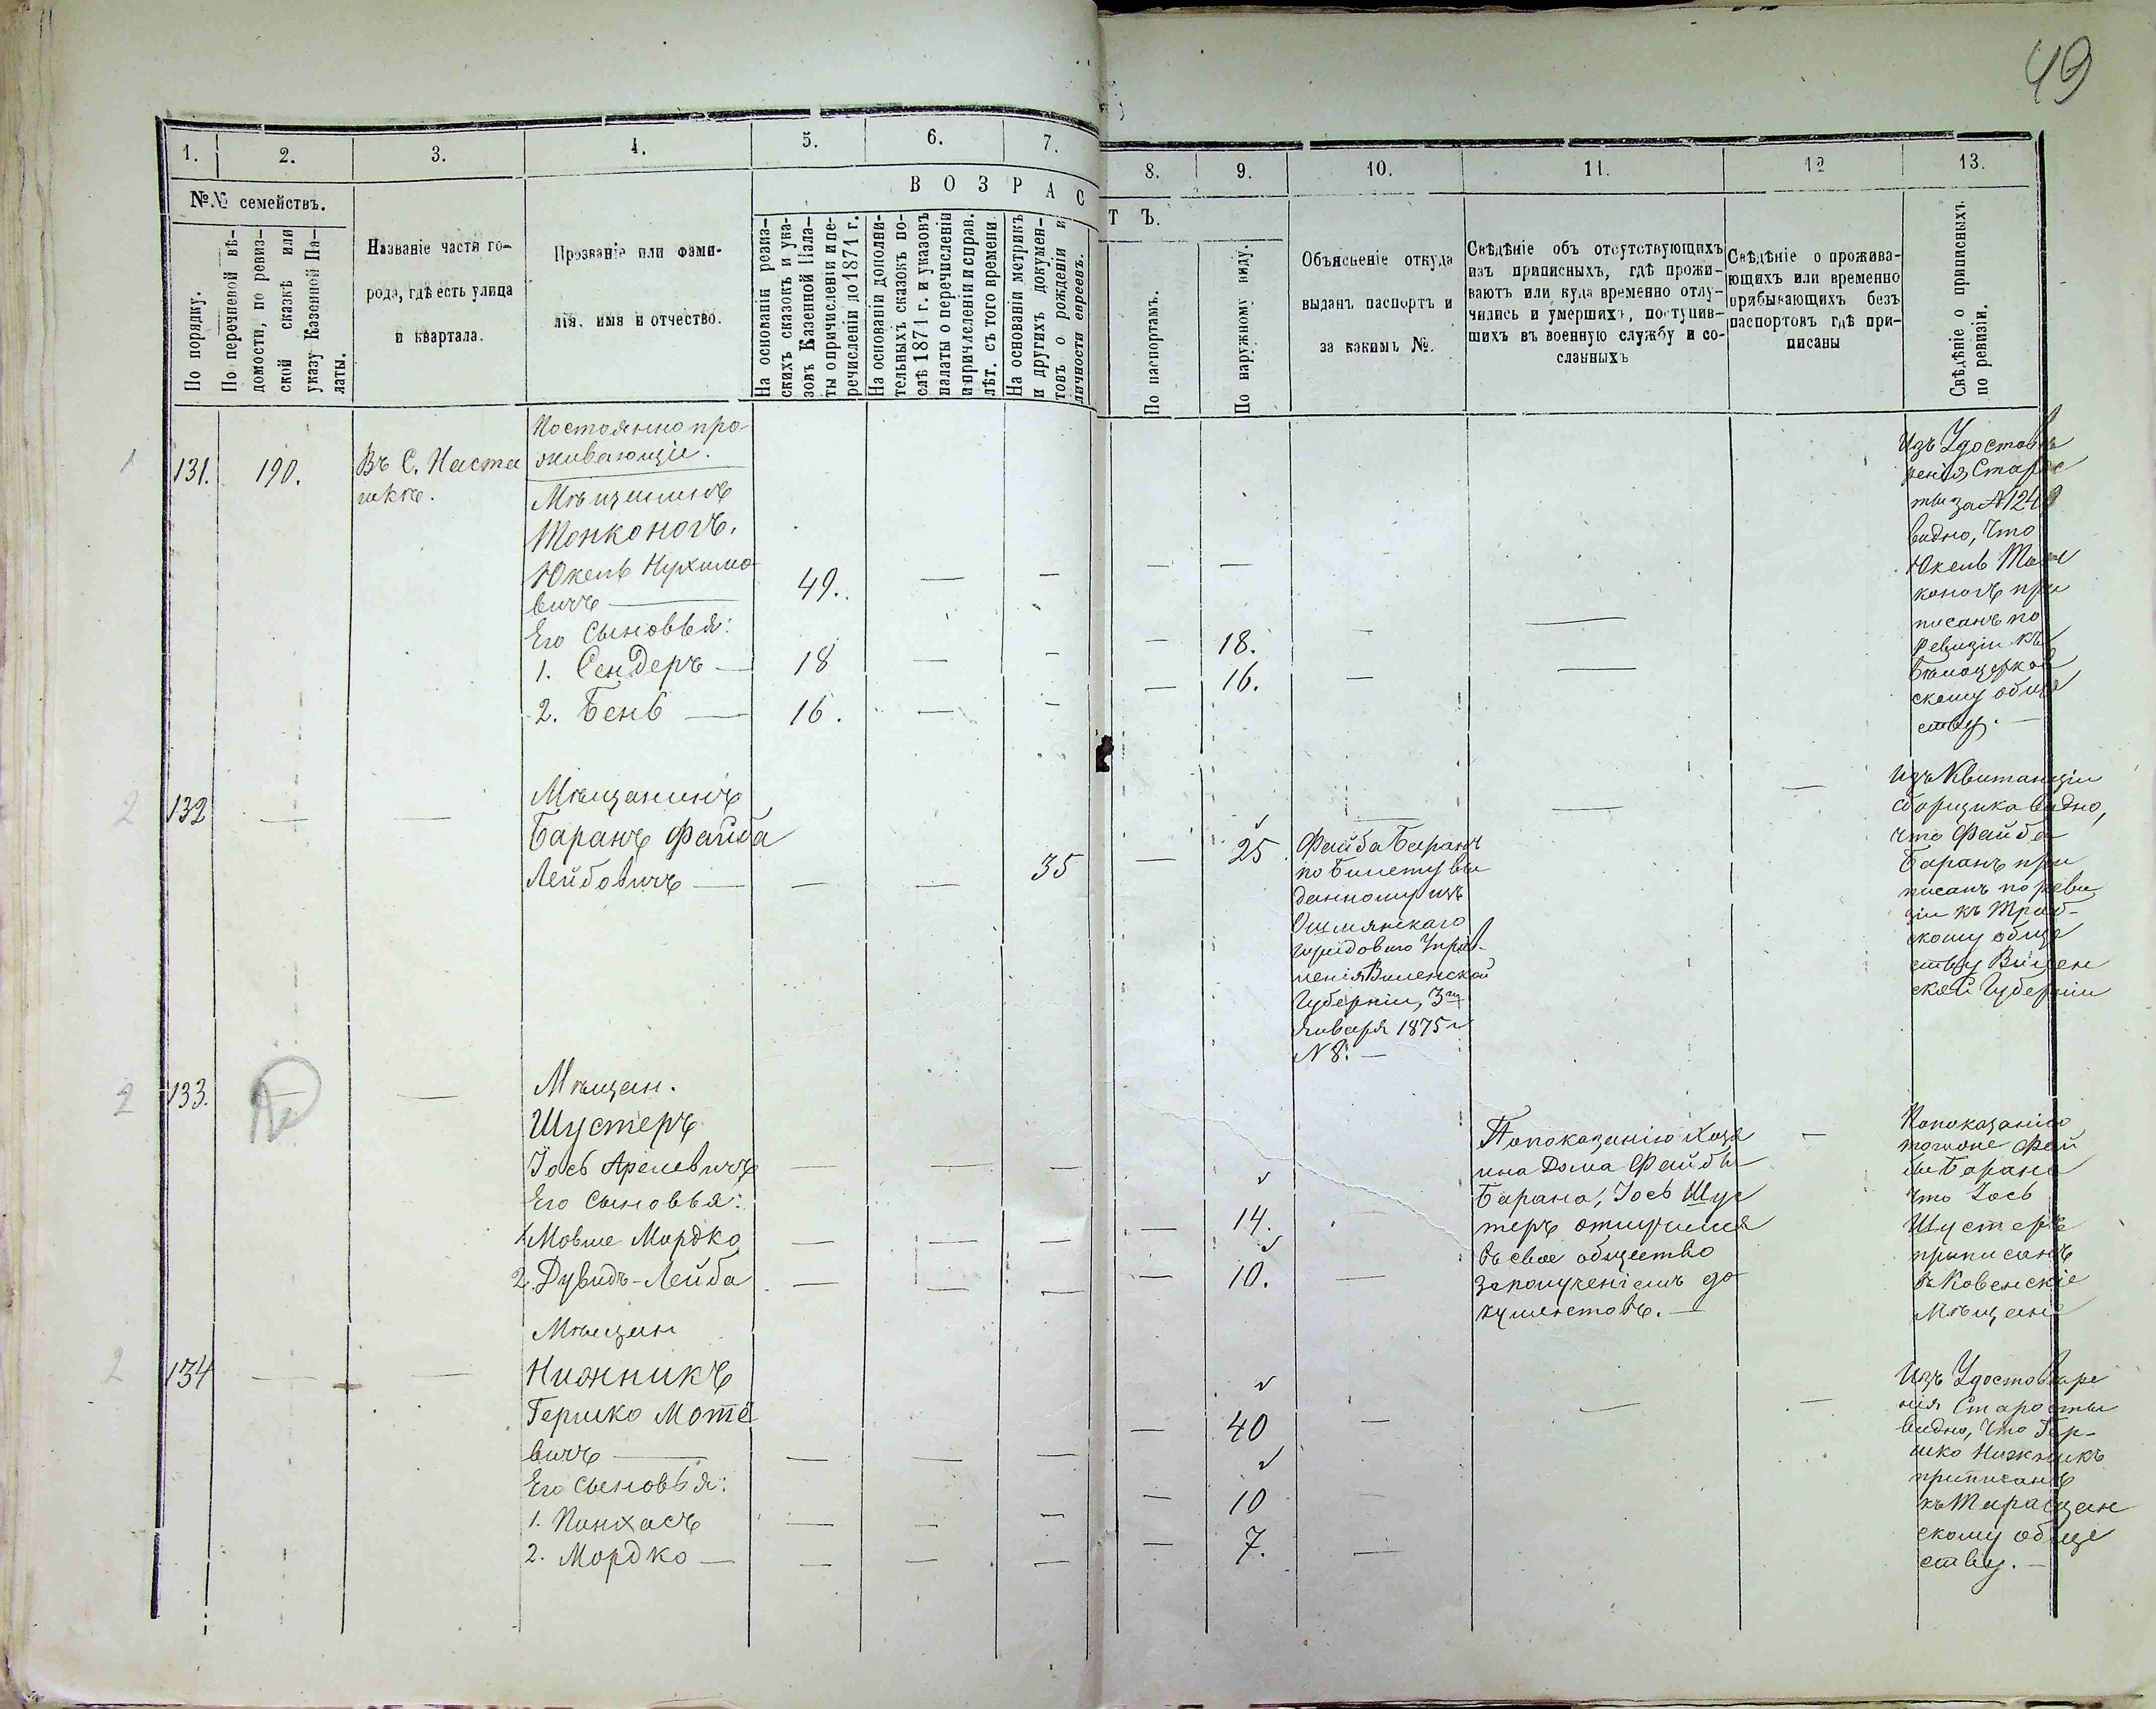 49
1. 2. 3. 4. 5. 6. 7. 8. 9. 10. 11. 12 13.
№№ семействъ.
По порядку.
По перечневой вѣ-
домости, по ревиз-
ской сказкѣ или
указу Казенной Па-
латы.
Названіе части го-
рода, гдѣ есть улица
и квартала.
Прозваніе или фами-
лія, имя и отчество.
ВОЗРАСТЪ.
На основаніи ревиз-
скихъ сказокъ и ука-
зовъ Казенной Пала-
ты о причисленіи и пе-
речисленіи до 1871 г.
На основаніи дополни-
тельныхъ сказокъ по-
слѣ 1871 г. и указовъ
палаты о перечисленіи
и причисленіи и справ.
лѣт. съ того времени.
На основаніи метрикъ
и другихъ докумен-
товъ о рожденіи и
личности евреевъ.
По паспортамъ.
По наружному виду.
Объясненіе откуда
выданъ паспортъ и
за какимъ №.
Свѣдѣніе объ отсутствующихъ
изъ приписныхъ, гдѣ прожи-
ваютъ или куда временно отлу-
чились и умершихъ, поступив-
шихъ въ военную службу и со-
сланныхъ
Свѣдѣніе о прожива-
ющихъ или временно
прибывающихъ безъ
паспортовъ гдѣ при-
писаны
Свѣдѣніе о приписныхъ
по ревизіи.
1 131. 190.
Въ С. Наста
шкѣ.
Постоянно про-
живающіе.
Мѣщанинъ
Тонконогъ,
Юкель Нухимо-
вичъ — 49. — — — —
Его Сыновья:
1. Сендеръ — 18 — — — 18. — —
2. Бень — 16. — — — 16. — —
Изъ Удостовѣ
ренія Старос
ты за №
видно, что
Юкель Тон
коногъ при
писанъ по
ревизіи къ
Бѣлоцерков
скому обще
ству. —
2 132 — —
Мѣщанинъ
Баранъ Файба
Лейбовичъ — — — 35 — 25
Файба Баранъ
по билету вы
данному изъ
Ошмянскаго
городоваго Управ-
ленія Виленской
Губерніи, 3го
Января 1875 г
№ 8. —
— —
Изъ Квитанціи
сборщика видно,
что Файба
Баранъ при
писанъ по реви
зіи къ Траб-
скому обще
ству Вилен
ской Губерніи
2 133. — —
Мѣщан.
Шустеръ
Іось Арелевичъ — — —
Его Сыновья:
1. Мовше Мордко — — — — 14. —
2. Дувидъ-Лейба — — — — 10. —
По показанію хозя
ина Дома Файбы
Барана, Іось Шус
теръ отлучился
въ свое общество
за полученіемъ до
кументовъ. —
—
По показанію
того же Фай
бы Барана
что Іось
Шустеръ
приписанъ
въ Ковенскіе
Мѣщане
2 134 — —
Мѣщан
Нижникъ
Гершко Моте
вичъ — — — — — 40 — — —
Его Сыновья:
1. Пинхасъ — — — — 10
2. Мордко — — — — — 7. —
Изъ Удостовѣре
нія Старосты
видно, что Гер-
шко Нижникъ
приписанъ
къ Таращан
скому обще
ству. —